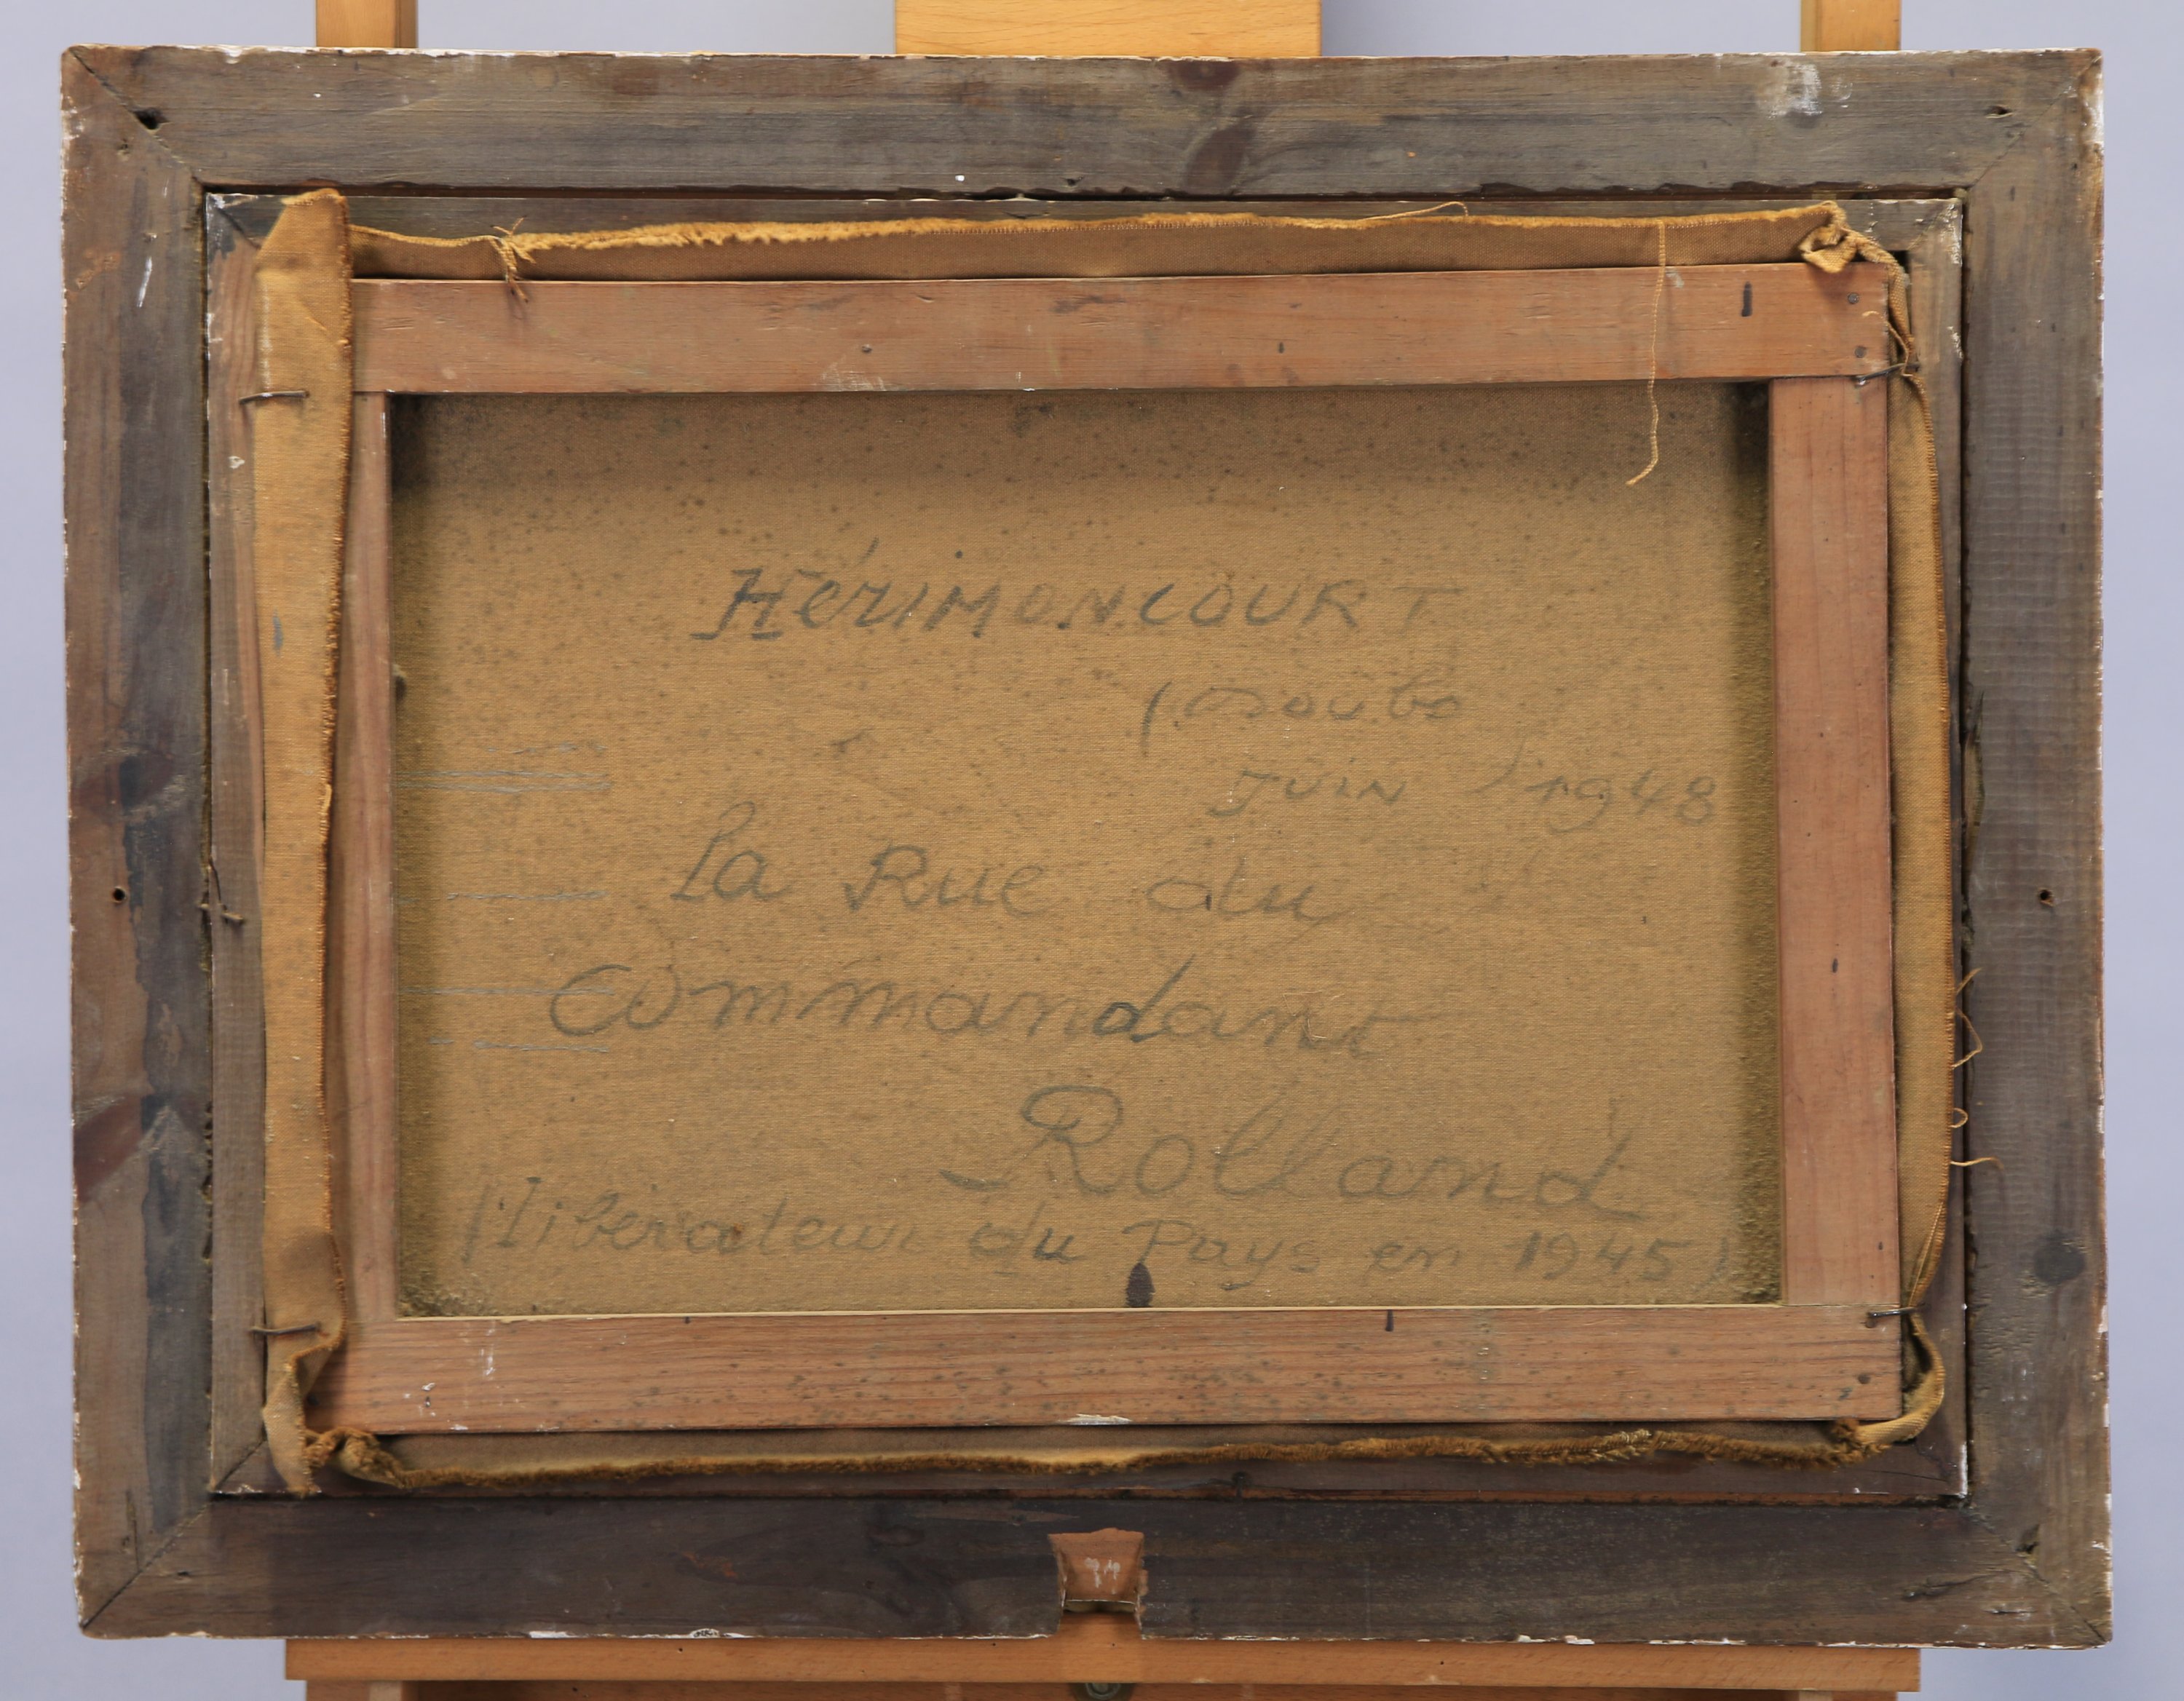 HérIMONCOURT
(Doubs
JUIN 1948
La Rue du
Commandant
Rolland
(Libérateur du Pays en 1945)